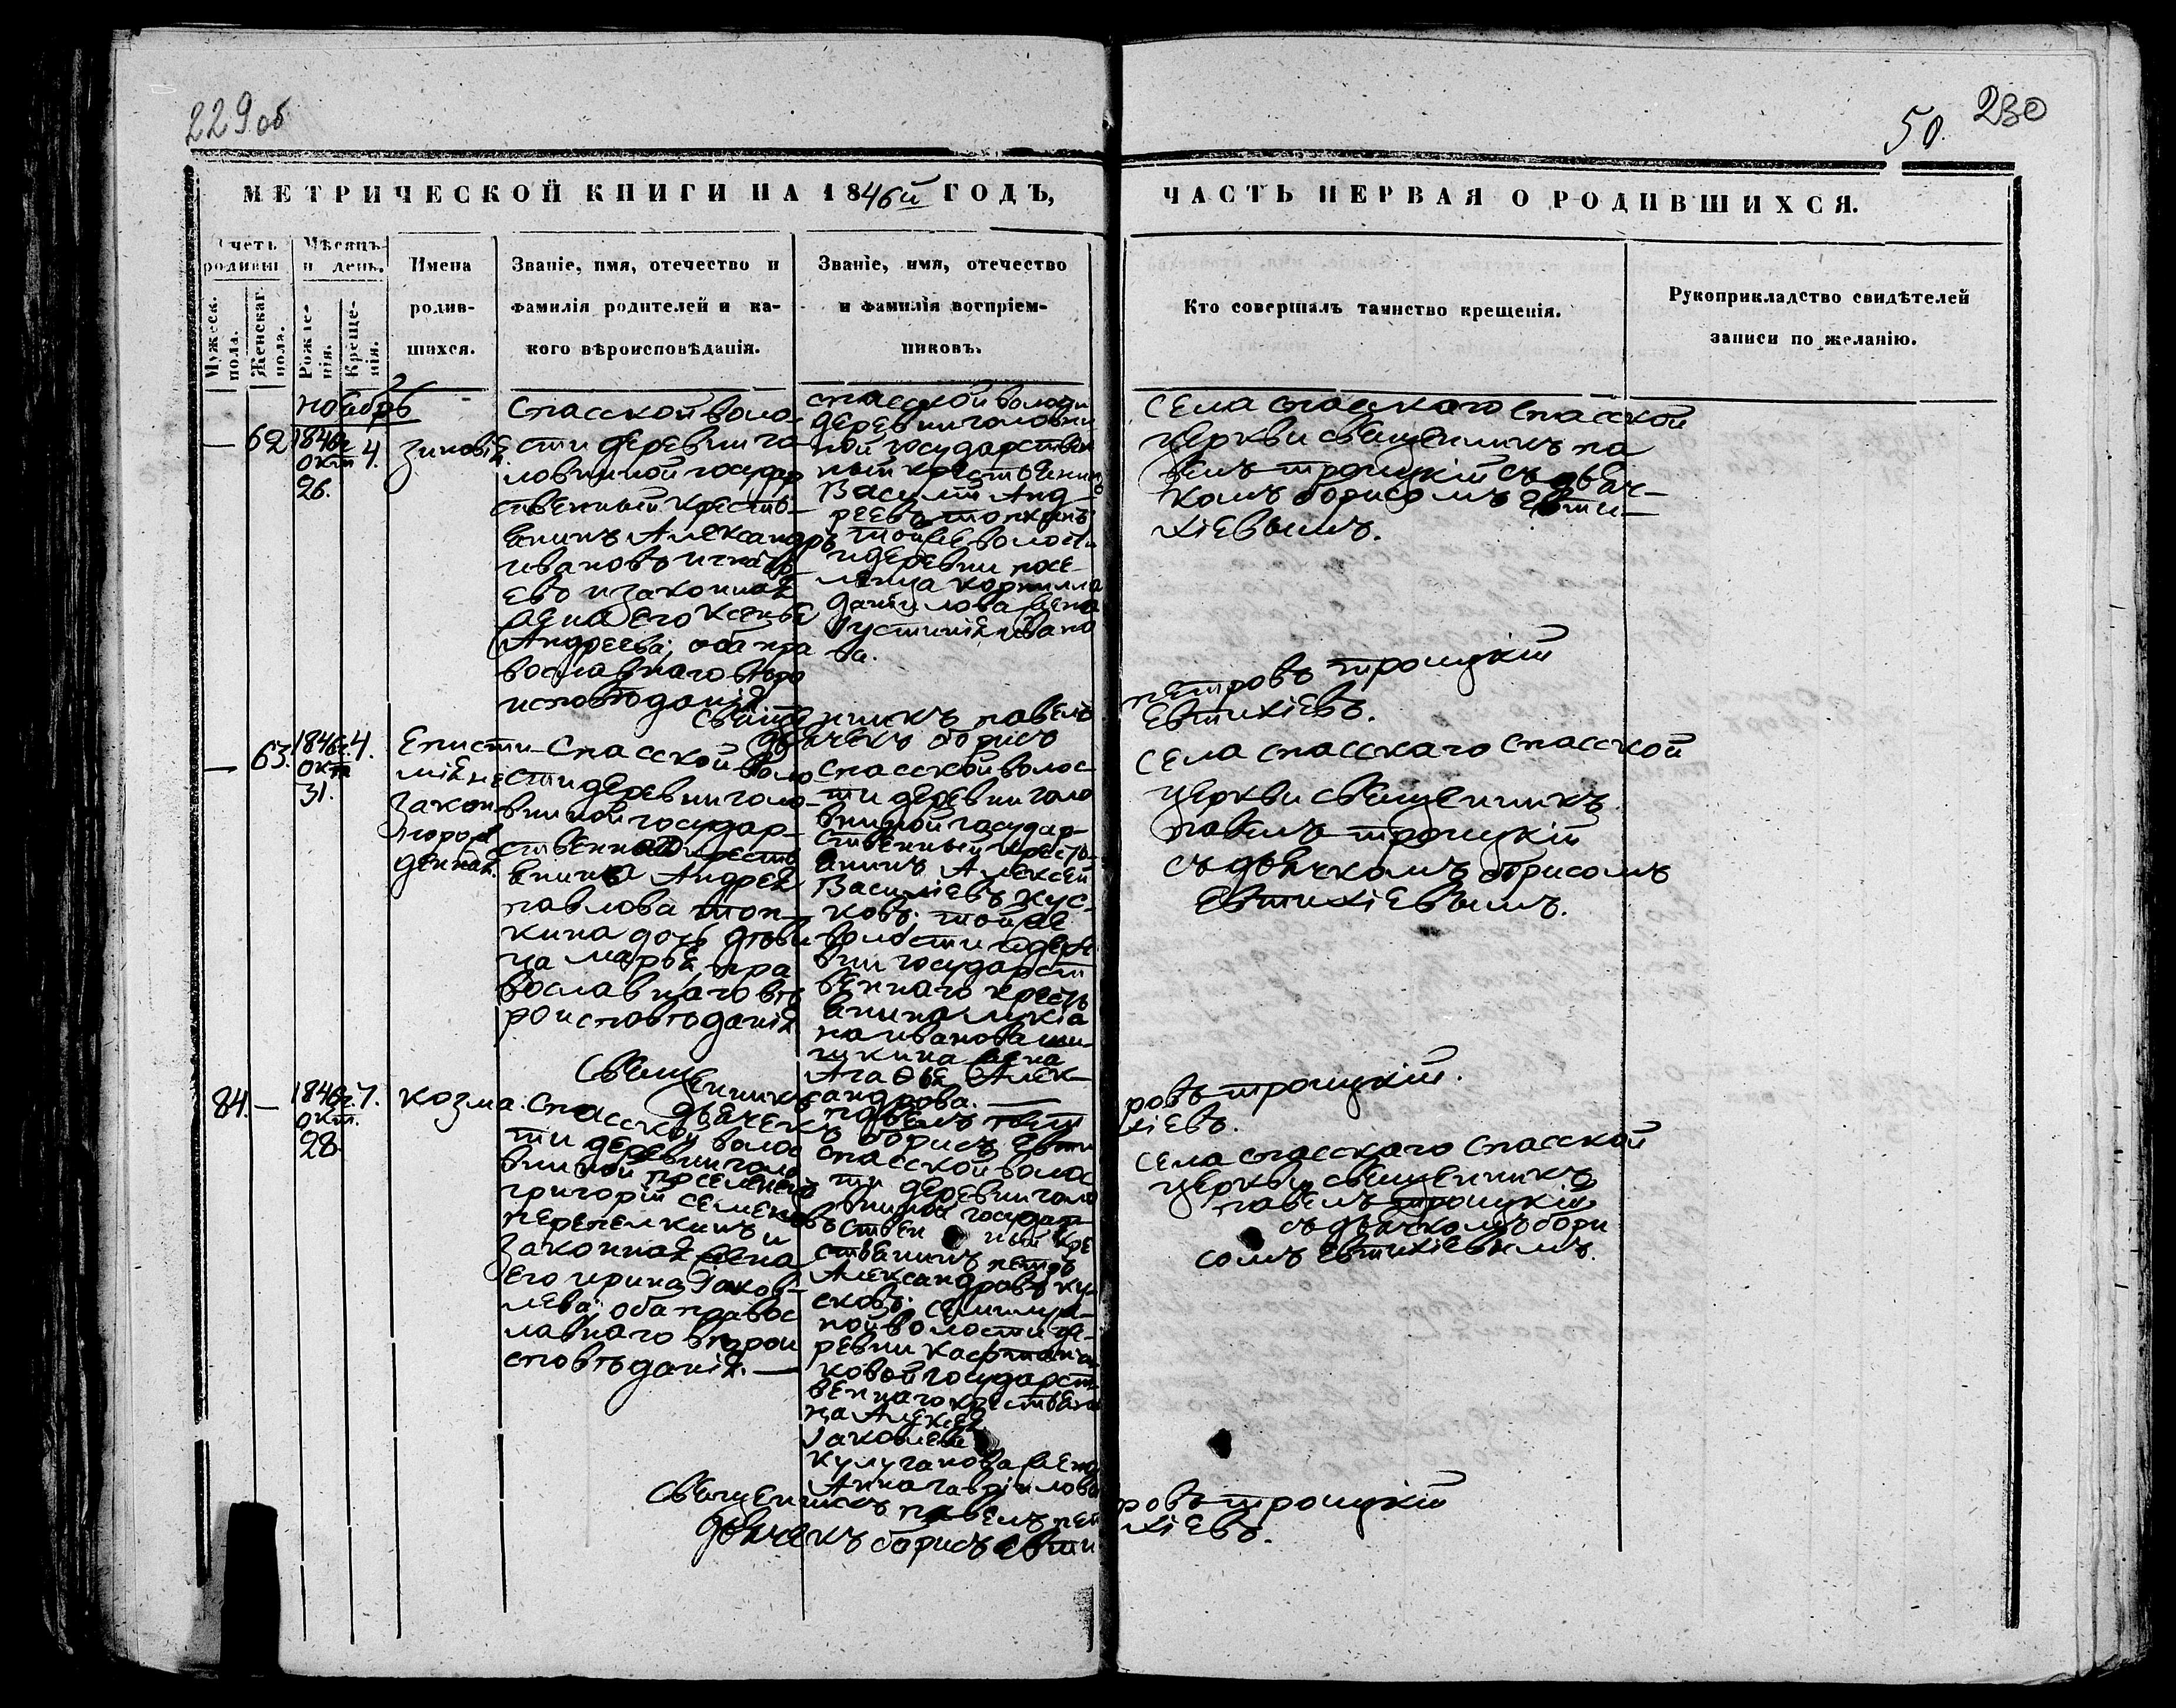 229об
50. 230
МЕТРИЧЕСКОЙ КНИГИ НА 1846й ГОДЪ,
ЧАСТЬ ПЕРВАЯ О РОДИВШИХСЯ.
Счетъ родивш
Мужеск. пола.
Женскаг. пола.
Мѣсяцъ и день.
Рожде-нія.
Креще-нія.
Имена
родив-
шихся.
Званіе, имя, отечество и
фамилія родителей и ка-
кого вѣроисповѣданія.
Званіе, имя, отечество
и фамилія воспріем-
никовъ.
Кто совершалъ таинство крещенія.
Рукоприкладство свидѣтелей
записи по желанію.
ноябрь
— 62
1846г.
окт
26.
4.
Зиновія.
Спасской воло-
сти деревни го-
ловниной государ
ственный кресть-
янинъ Александръ
Ивановъ
евъ и законная
жена его Ксенья
Андреева; оба пра
вославнаго вѣро
исповѣданія
спасской волости
деревни головни
ной государствен
ный крестьянинъ
Василій Анд-
реевъ Топкинъ
той же волости
и деревни посе-
ленца Корнила
Данилова жена
Устинія Ивано
ва.
села спасскаго спасской
церкви священникъ Па
велъ Троицкій съ дьяч-
комъ Борисомъ Евти-
хіевымъ.
Священникъ Павелъ Петровъ Троицкій
Дьячекъ Борисъ Евтихіевъ.
— 63.
1846г.
окт
31.
4.
Еписти-
мія не
закон
норож
денная.
Спасской воло
сти деревни голо-
вниной государ-
ственнаго кресть
янина Андрея
Павлова Топ-
кина дочь дѣви
ца Марья, пра
вославнаго вѣ
роисповѣданія
Спасской волос-
ти деревни голо
вниной государ-
ственный кресть-
янинъ Алексей
Василіевъ Кус-
ковъ; той же
волости и дерев
ни государст
веннаго кресть
янина Лукіа
на Иванова Ши-
шкина жена
Агафья Алек-
сандрова. —
села спасскаго спасской
церкви священникъ
Павелъ Троицкій
съ дьячкомъ Борисомъ
Евтихіевымъ.
Священникъ Павелъ Петровъ Троицкій.
Дьячекъ Борисъ Евтихіевъ.
84. —
1846г.
окт.
28.
7.
Козма.
Спасской волос
ти деревни голо
вниной поселенецъ
Григорій Семеновъ
Перепелкинъ и
законная жена
его Ирина Яков-
лева; оба правос
лавнаго вѣрои
сповѣданія. —
спасской волос
ти деревни голо
вниной государ-
ствен ный кре
стьянинъ Петръ
Александровъ Ку-
сковъ;
ной волости де-
ревни
ковой государст
веннаго крестьяни
на Алексея
Яковлева
Кулуганова жена
Анна Гавріилова
села спасскаго спасской
церкви священникъ
Павелъ Троицкій
съ дьячкомъ Бори
сомъ Евтихіевымъ.
Священникъ Павелъ Петровъ Троицкій
Дьячекъ Борисъ Евтихіевъ.